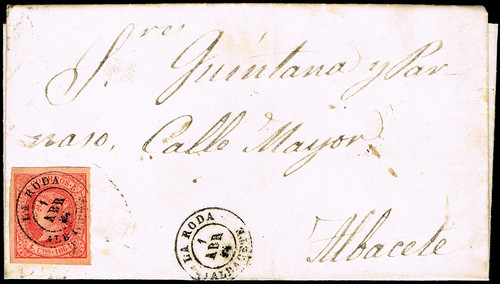 Sres
S. Quintana y Par-
naso, Calle Mayor
Albacete
LA RODA
1
ABR
64
ALBACETE
LA RODA
1
ABR
64
ALBACETE